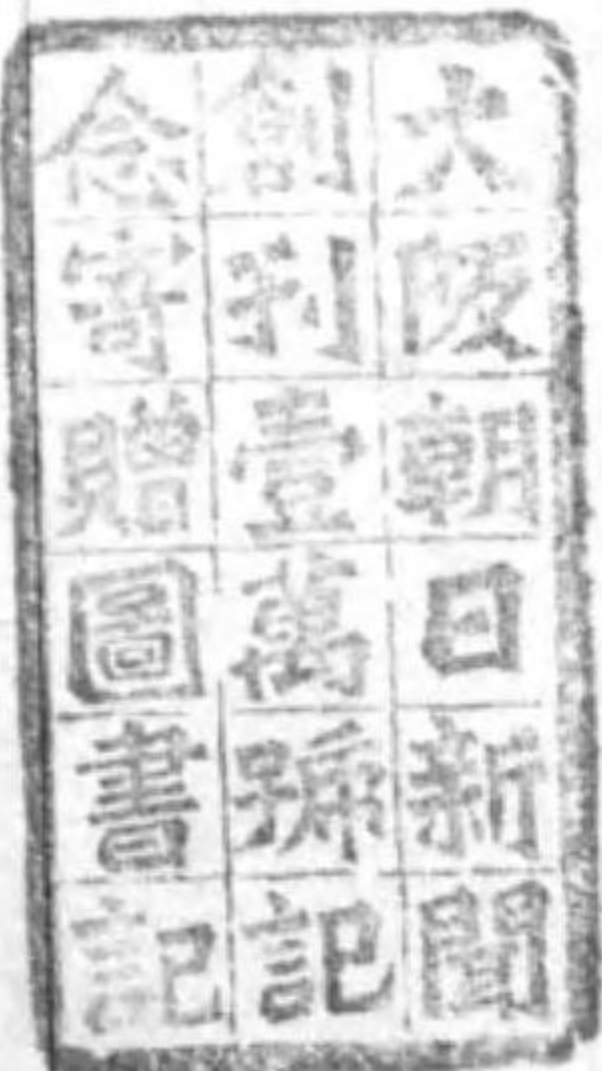 大阪朝日新聞
創刊壹萬號記
念寄贈圖書記